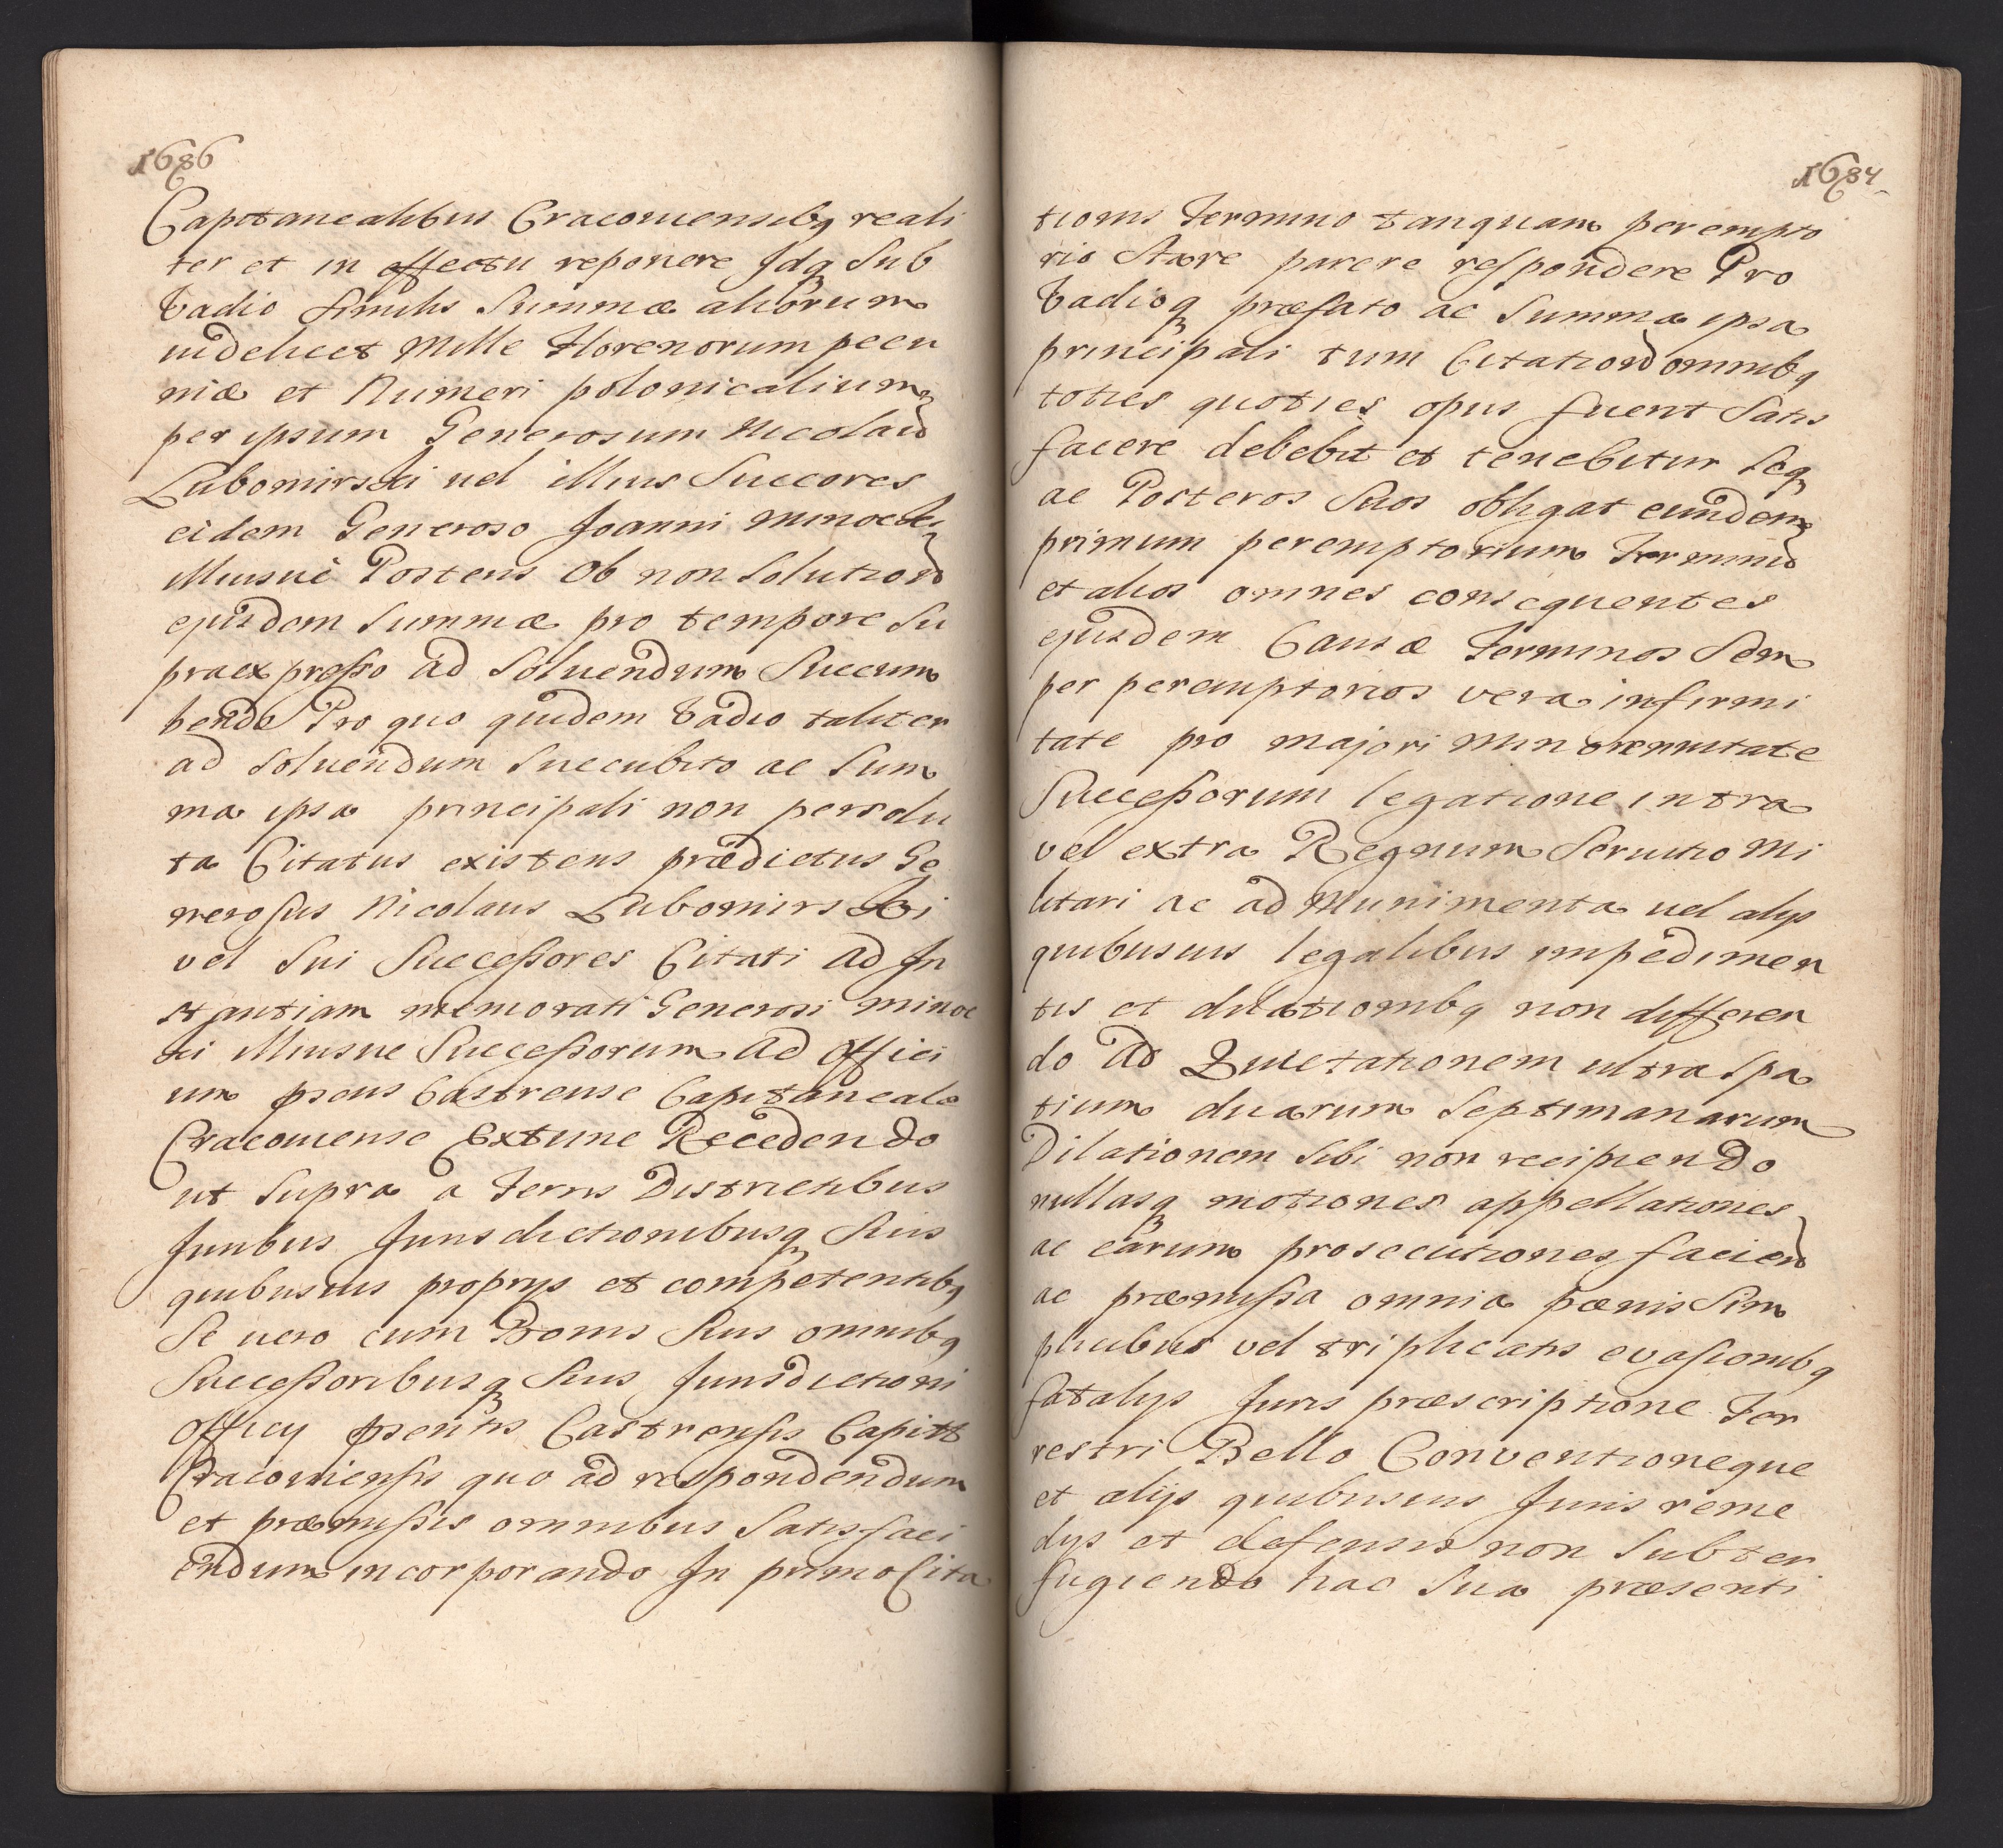 1686
Capitanealibus Cracoviensibq reali
ter et in effectu reponere Idq Sub
Vadio Similis Summæ aliorum
videlicet Mille Florenorum pecu
niæ et Numeri polonicalium
per ipsum Generosum Nicolaū
Lubomirski vel illius Succores
eidem Generoso Joanni Minocki
Illiusvè Posteris Ob non Solutionē
ejusdem Summæ pro tempore Su
praexpresso ad Solvendum Succum
bendo Pro quo quidem Vadio taliter
ad Solvendum Succubito ac Sum
ma ipsa principali non persolu
ta Citatus existens prædictus Ge
nerosus Nicolaus Lubomirski
vel Sui Successores Citati ad In
stantiam memorati Generosi Minoc
ki Illiusve Successorum ad Offici
um psens Castrense Capitaneale
Cracoviense Extunc Recedendo
ut Supra a Terris Districtibus
Juribus Jurisdictionibusq Suis
quibusvis proprys et competentibq
Se vero cum Bonis Suis omnibq
Successoribusq Suis Jurisdictioni
Officy psentis Castrensis Capitt
Cracoviensis quo ad respondendum
et præmissis omnibus Satisfaci
endum incorporando In primo Cita
1684
tionis Termino tanquam perempto
rio Stare parere respondere Pro
Vadioq præfato ac Summa ipsa
principali tum Citationū omnibq
toties quoties opus fuerit Satis
facere debebit et tenebitur Seq
ac Posteros Suos obligat eundem
primum peremptorium Terminū
et alios omnes consequentes
ejusdem Causæ Terminos Sem
per peremptorios vera infirmi
tate pro majori minorennitate
Successorum legatione intra
vel extra Regnum Servitio Mi
litari ac ad Munimenta vel alys
quibusvis legalibus impedimen
tis et dilationibq non differen
do ad Quietationem ultra Spa
tium duarum Septimanarum
Dilationem Sibi non recipiendo
nullasq motiones appellationes
ac earum prosecutiones faciend
ac præmissa omnia pænis Sim
plicibus vel triplicatis evasionibq
fatalys Juris præscriptione Ter
restri Bello Conventioneque
et alijs quibusvis Juris reme
dys et defensis non Subter
fugiendo hac Sua præsenti